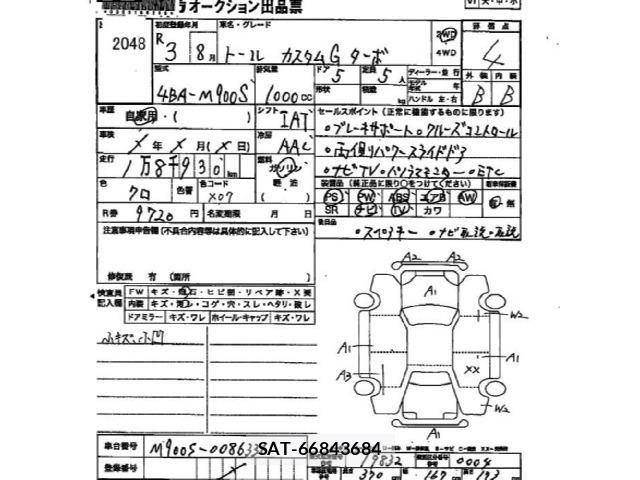 オークション出品票
2048
初度登録年月
R
3 8月
車名・グレード
トール カスタムG ターボ
2WD
4WD
評価点
4
型式
4BA-M900S
排気量
1000cc
ドア
5
定員
5人
形状
積載
kg
ディーラー・並行
モデル年式 年
ハンドル 左・右
外装 内装
B B
車歴
自家用・( )
シフト
IAT
セールスポイント(正常に機能するものに限ります)
車検
X年X月(X日)
冷房
AAC
・ブレーキサポート ・クルーズコントロール
・両側パワースライドドア
走行
1万8千930km
燃料
ガソリン
軽油
( )
・ナビTV ・パノラマモニター ・ETC
色
クロ
色替
色コード
X07
装備品(純正品に限り○をつけてください)
PS PW ABS エアB AW
SR ナビ TV カワ
新車保証書
有 無
R券 9720円
名変期限 月 日
後日品
・スペアキー ・ナビ取説・取説
注意事項申告欄(不具合内容等は具体的に記入して下さい)
修復歴 有 (箇所 )
検査員記入欄
FW キズ・飛石・ヒビ割・リペア跡・X要
内装 キズ・汚レ・コゲ・穴・スレ・ヘタリ・破レ
ドアミラー キズ・ワレ ホイール・キャップ キズ・ワレ
小キズ、小凹
A2 A2
A1
W2
A1 A1
A3 XX
W2
A1
車台番号
M900S-008633
SAT-66843684
登録番号
19832
0004
370 cm 167 cm 173 cm